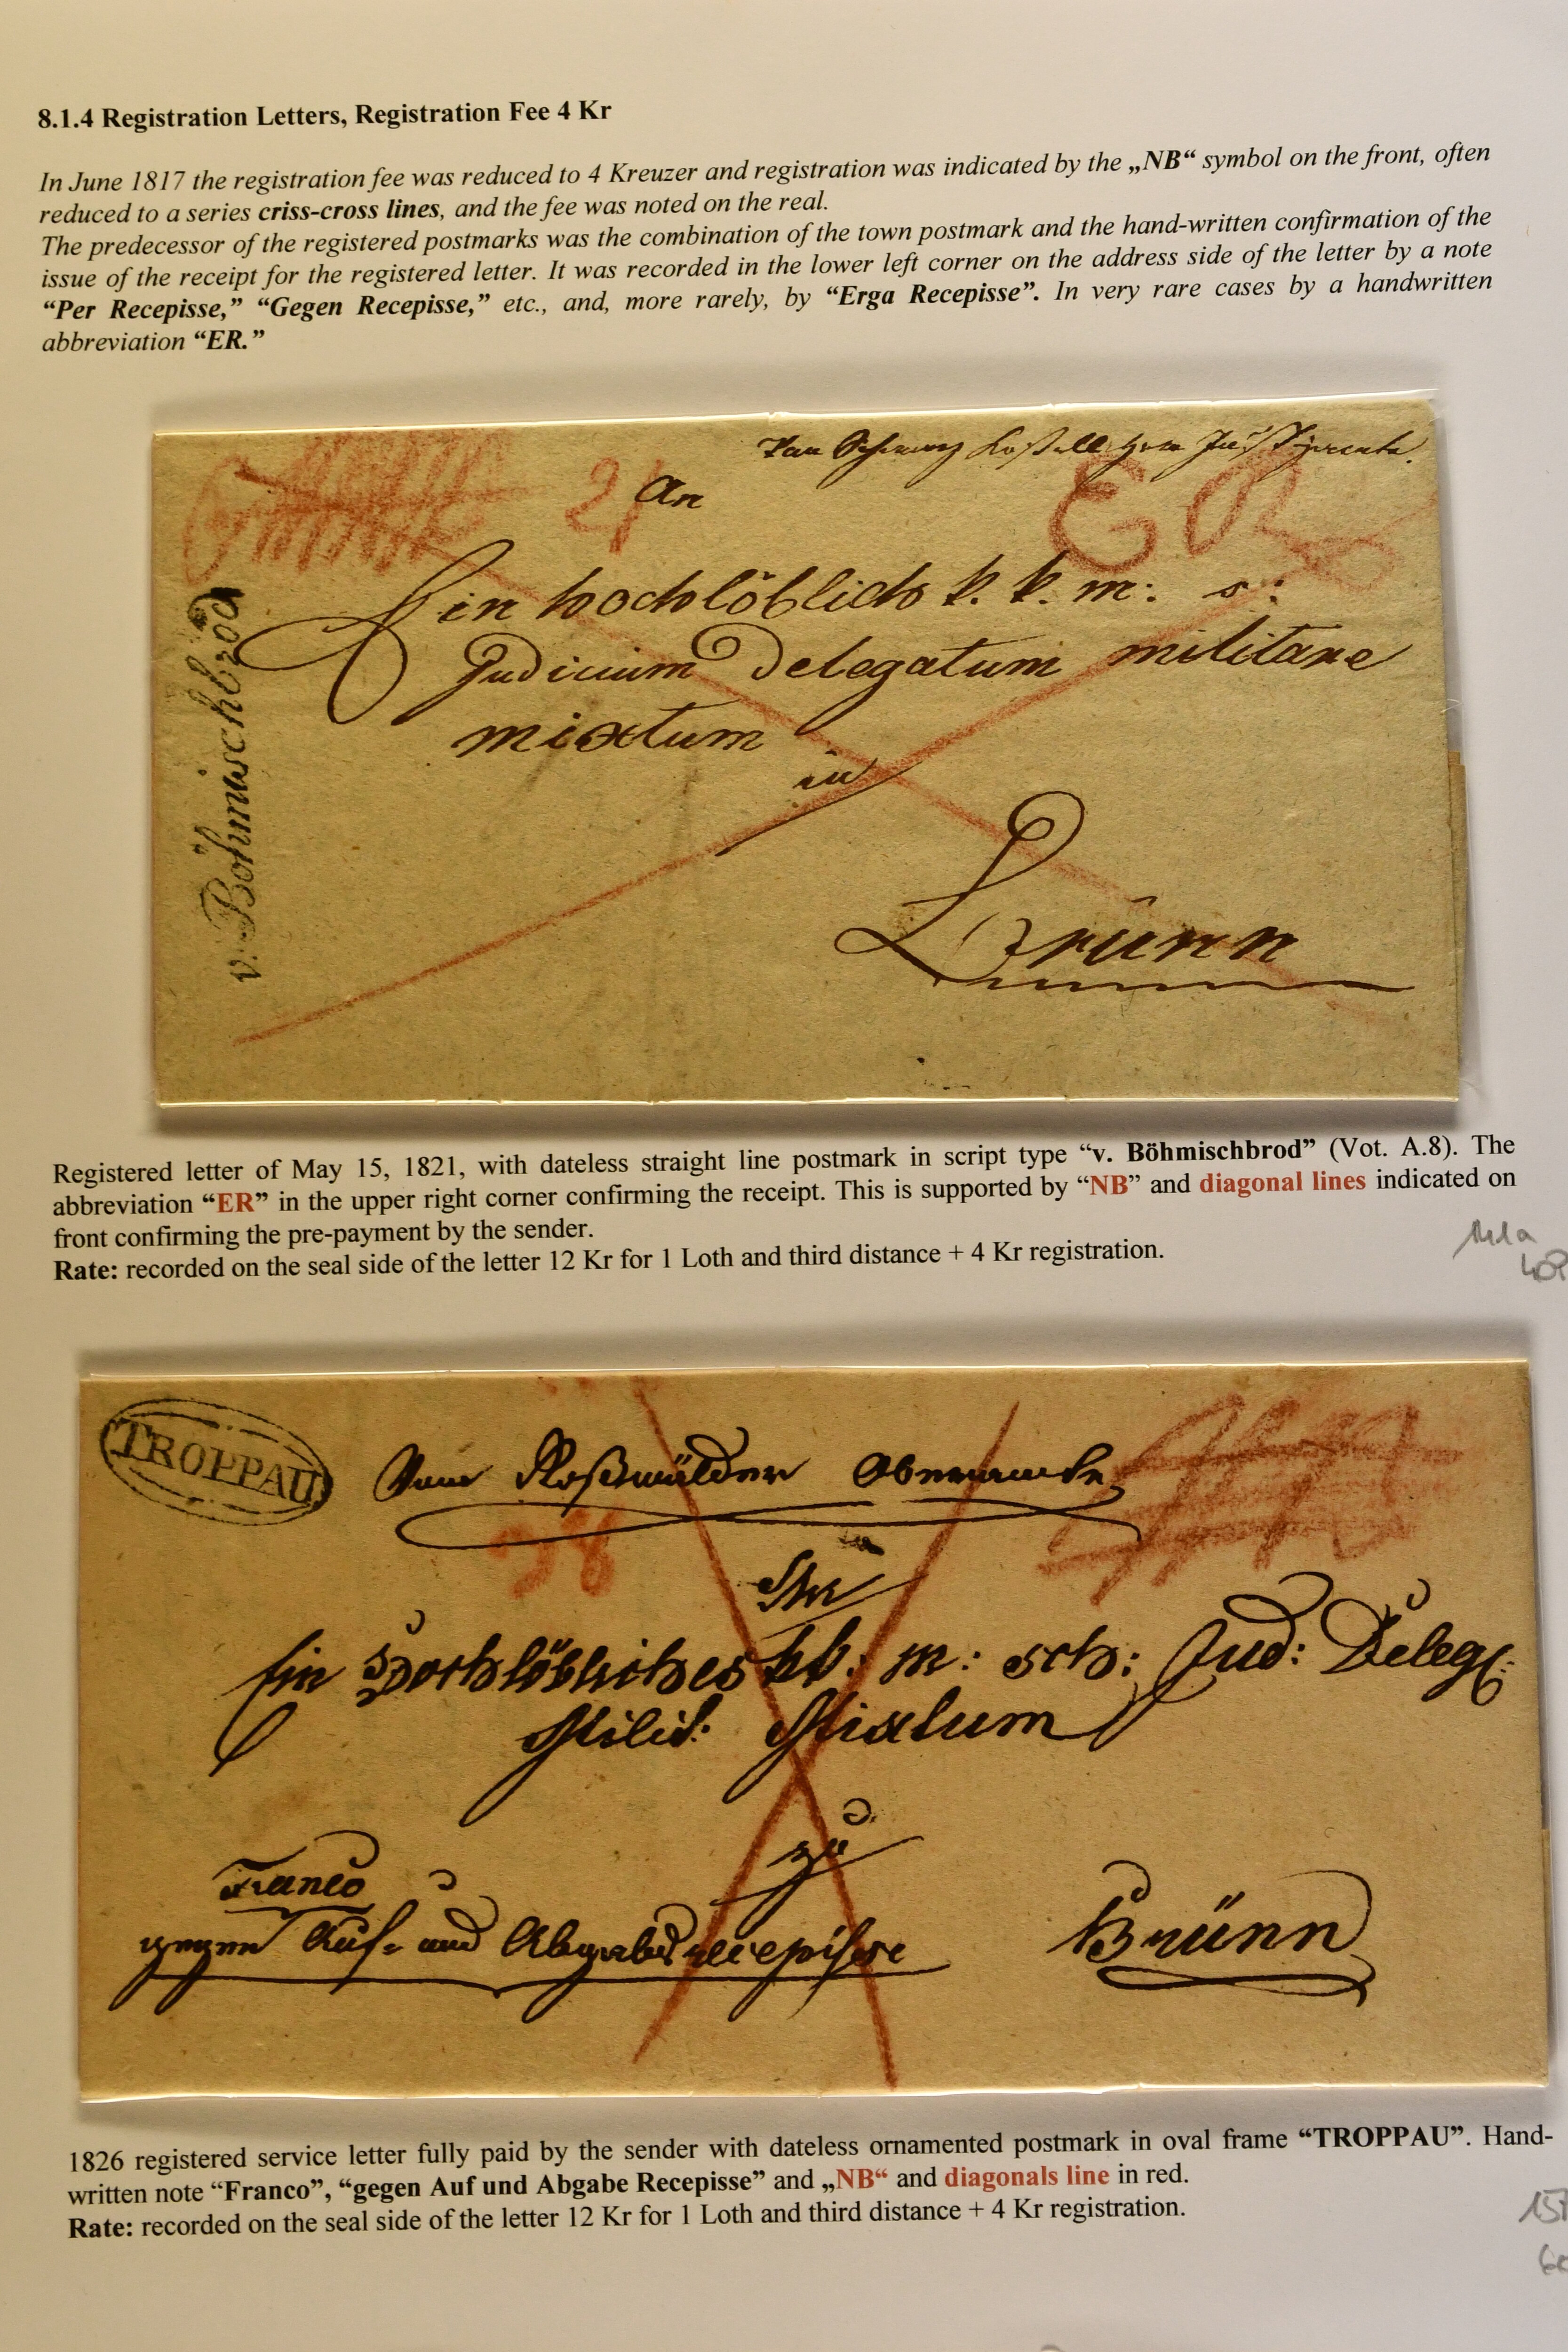 8.1.4 Registration Letters, Registration Fee 4 Kr
In June 1817 the registration fee was reduced to 4 Kreuzer and registration was indicated by the „NB“ symbol on the front, often
reduced to a series criss-cross lines, and the fee was noted on the real.
The predecessor of the registered postmarks was the combination of the town postmark and the hand-written confirmation of the
issue of the receipt for the registered letter. It was recorded in the lower left corner on the address side of the letter by a note
“Per Recepisse,” “Gegen Recepisse,” etc., and, more rarely, by “Erga Recepisse”. In very rare cases by a handwritten
abbreviation “ER.”
21
An
ER
v. Böhmischbrod
Ein hochlöblich k. k. m: s:
Judicium delegatum militare
mixtum
in
Brünn
Registered letter of May 15, 1821, with dateless straight line postmark in script type “v. Böhmischbrod” (Vot. A.8). The
abbreviation “ER” in the upper right corner confirming the receipt. This is supported by “NB” and diagonal lines indicated on
front confirming the pre-payment by the sender.
Rate: recorded on the seal side of the letter 12 Kr for 1 Loth and third distance + 4 Kr registration.
TROPPAU
Vom Roßwälder Oberamte
An
Ein Hochlöbliches kk: m: sch: Jud: Deleg:
Milit: Mixtum
zu
Franco
gegen Auf- und Abgabsrecepisse
Brünn
1826 registered service letter fully paid by the sender with dateless ornamented postmark in oval frame “TROPPAU”. Hand-
written note “Franco”, “gegen Auf und Abgabe Recepisse” and „NB“ and diagonals line in red.
Rate: recorded on the seal side of the letter 12 Kr for 1 Loth and third distance + 4 Kr registration.